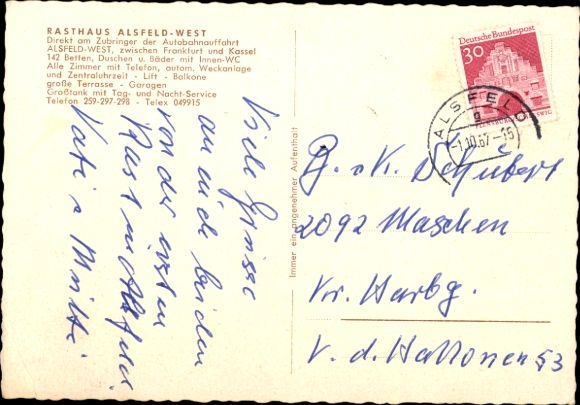 RASTHAUS ALSFELD-WEST
Direkt am Zubringer der Autobahnauffahrt
ALSFELD-WEST, zwischen Frankfurt und Kassel
142 Betten, Duschen u. Bäder mit Innen-WC
Alle Zimmer mit Telefon, autom. Weckanlage
und Zentraluhrzeit - Lift - Balkone
große Terrasse - Garagen
Großtank mit Tag- und Nacht-Service
Telefon 259-297-298 - Telex 049915
Viele Grüsse
an euch beiden
von der ersten
Rast in Alsfeld.
Vati u. Mutti.
Immer ein angenehmer Aufenthalt
Deutsche Bundespost
30
ALSFELD
-1.10.67-15
G. u. K. Schubert
2092 Maschen
Kr. Harbg.
V. d. Hallonen 53